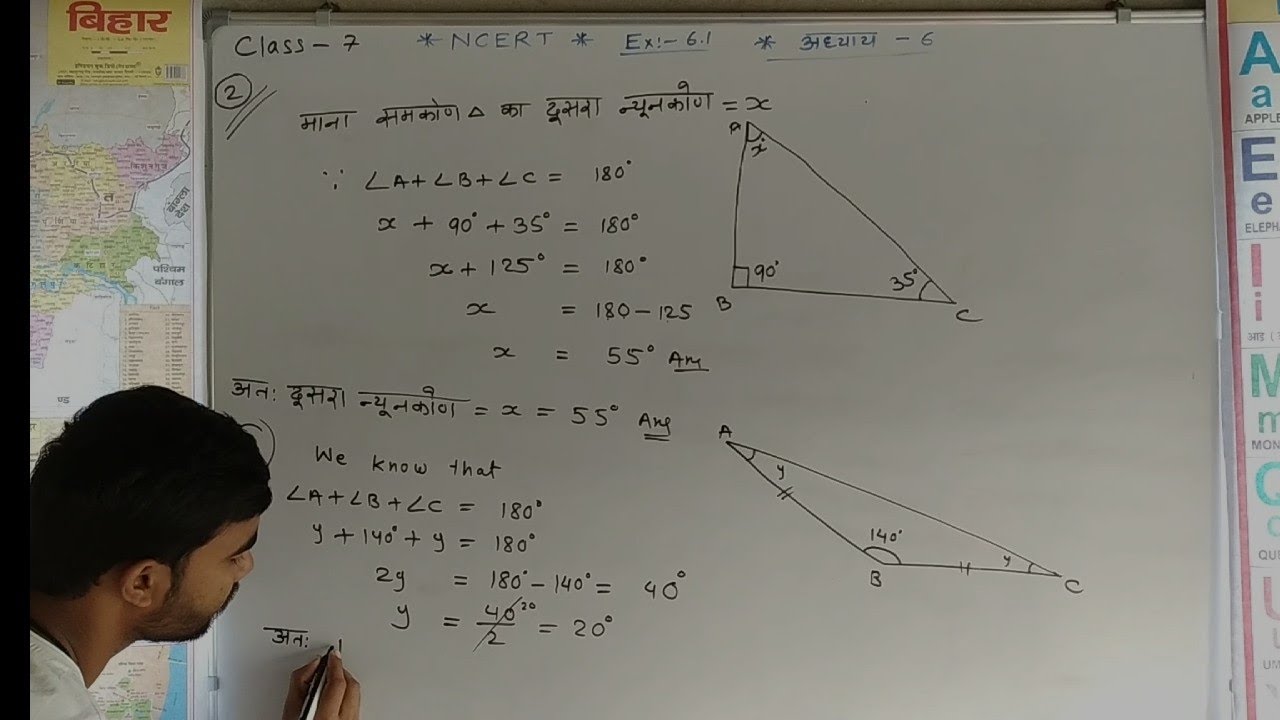 बिहार
Class - 7 * NCERT * Ex:- 6.1 * अध्याय - 6
2
माना समकोण △ का दूसरा न्यूनकोण = x
∵ ∠A+∠B+∠C = 180°
x + 90° + 35° = 180°
x + 125° = 180°
x = 180 - 125
x = 55° Ans
अतः दूसरा न्यूनकोण = x = 55° Ans
A
x
90°
35°
B
C
We know that
∠A+∠B+∠C = 180°
y + 140° + y = 180°
2y = 180° - 140° = 40°
y = 40/2 20 = 20°
अतः
A
y
140°
y
B
C
पश्चिम
बंगाल
बांग्ला
देश
A
a
APPLE
E
e
ELEPH
I
i
M
m
MON
QUI
U
u
UM